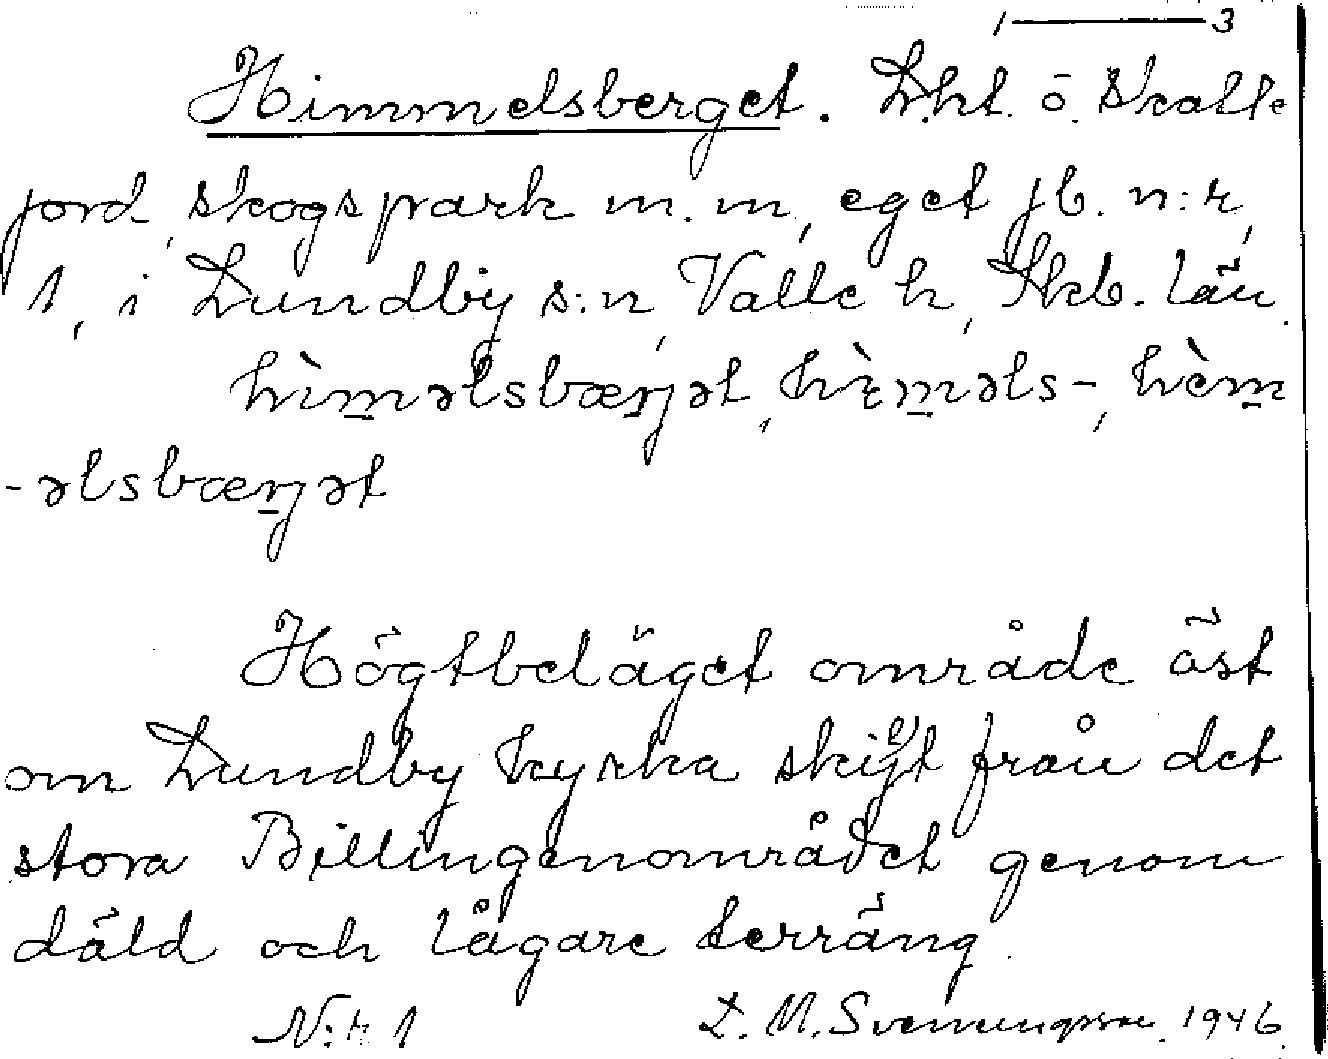 1 — 3
Himmelsberget. Lht. o. skatte
jord, skogspark m. m., eget jb. n:r,
1, i Lundby s:n, Valle h, Skb. län.
hìm̲əlsbær̲jət, hɪ̀m̲əls-, hèm̲
-əlsbær̲jət
Högtbeläget område öst
om Lundby kyrka skiljt från det
stora Billingenområdet genom
däld och lågare terräng.
N:r 1 L. M. Svenungsson. 1946.